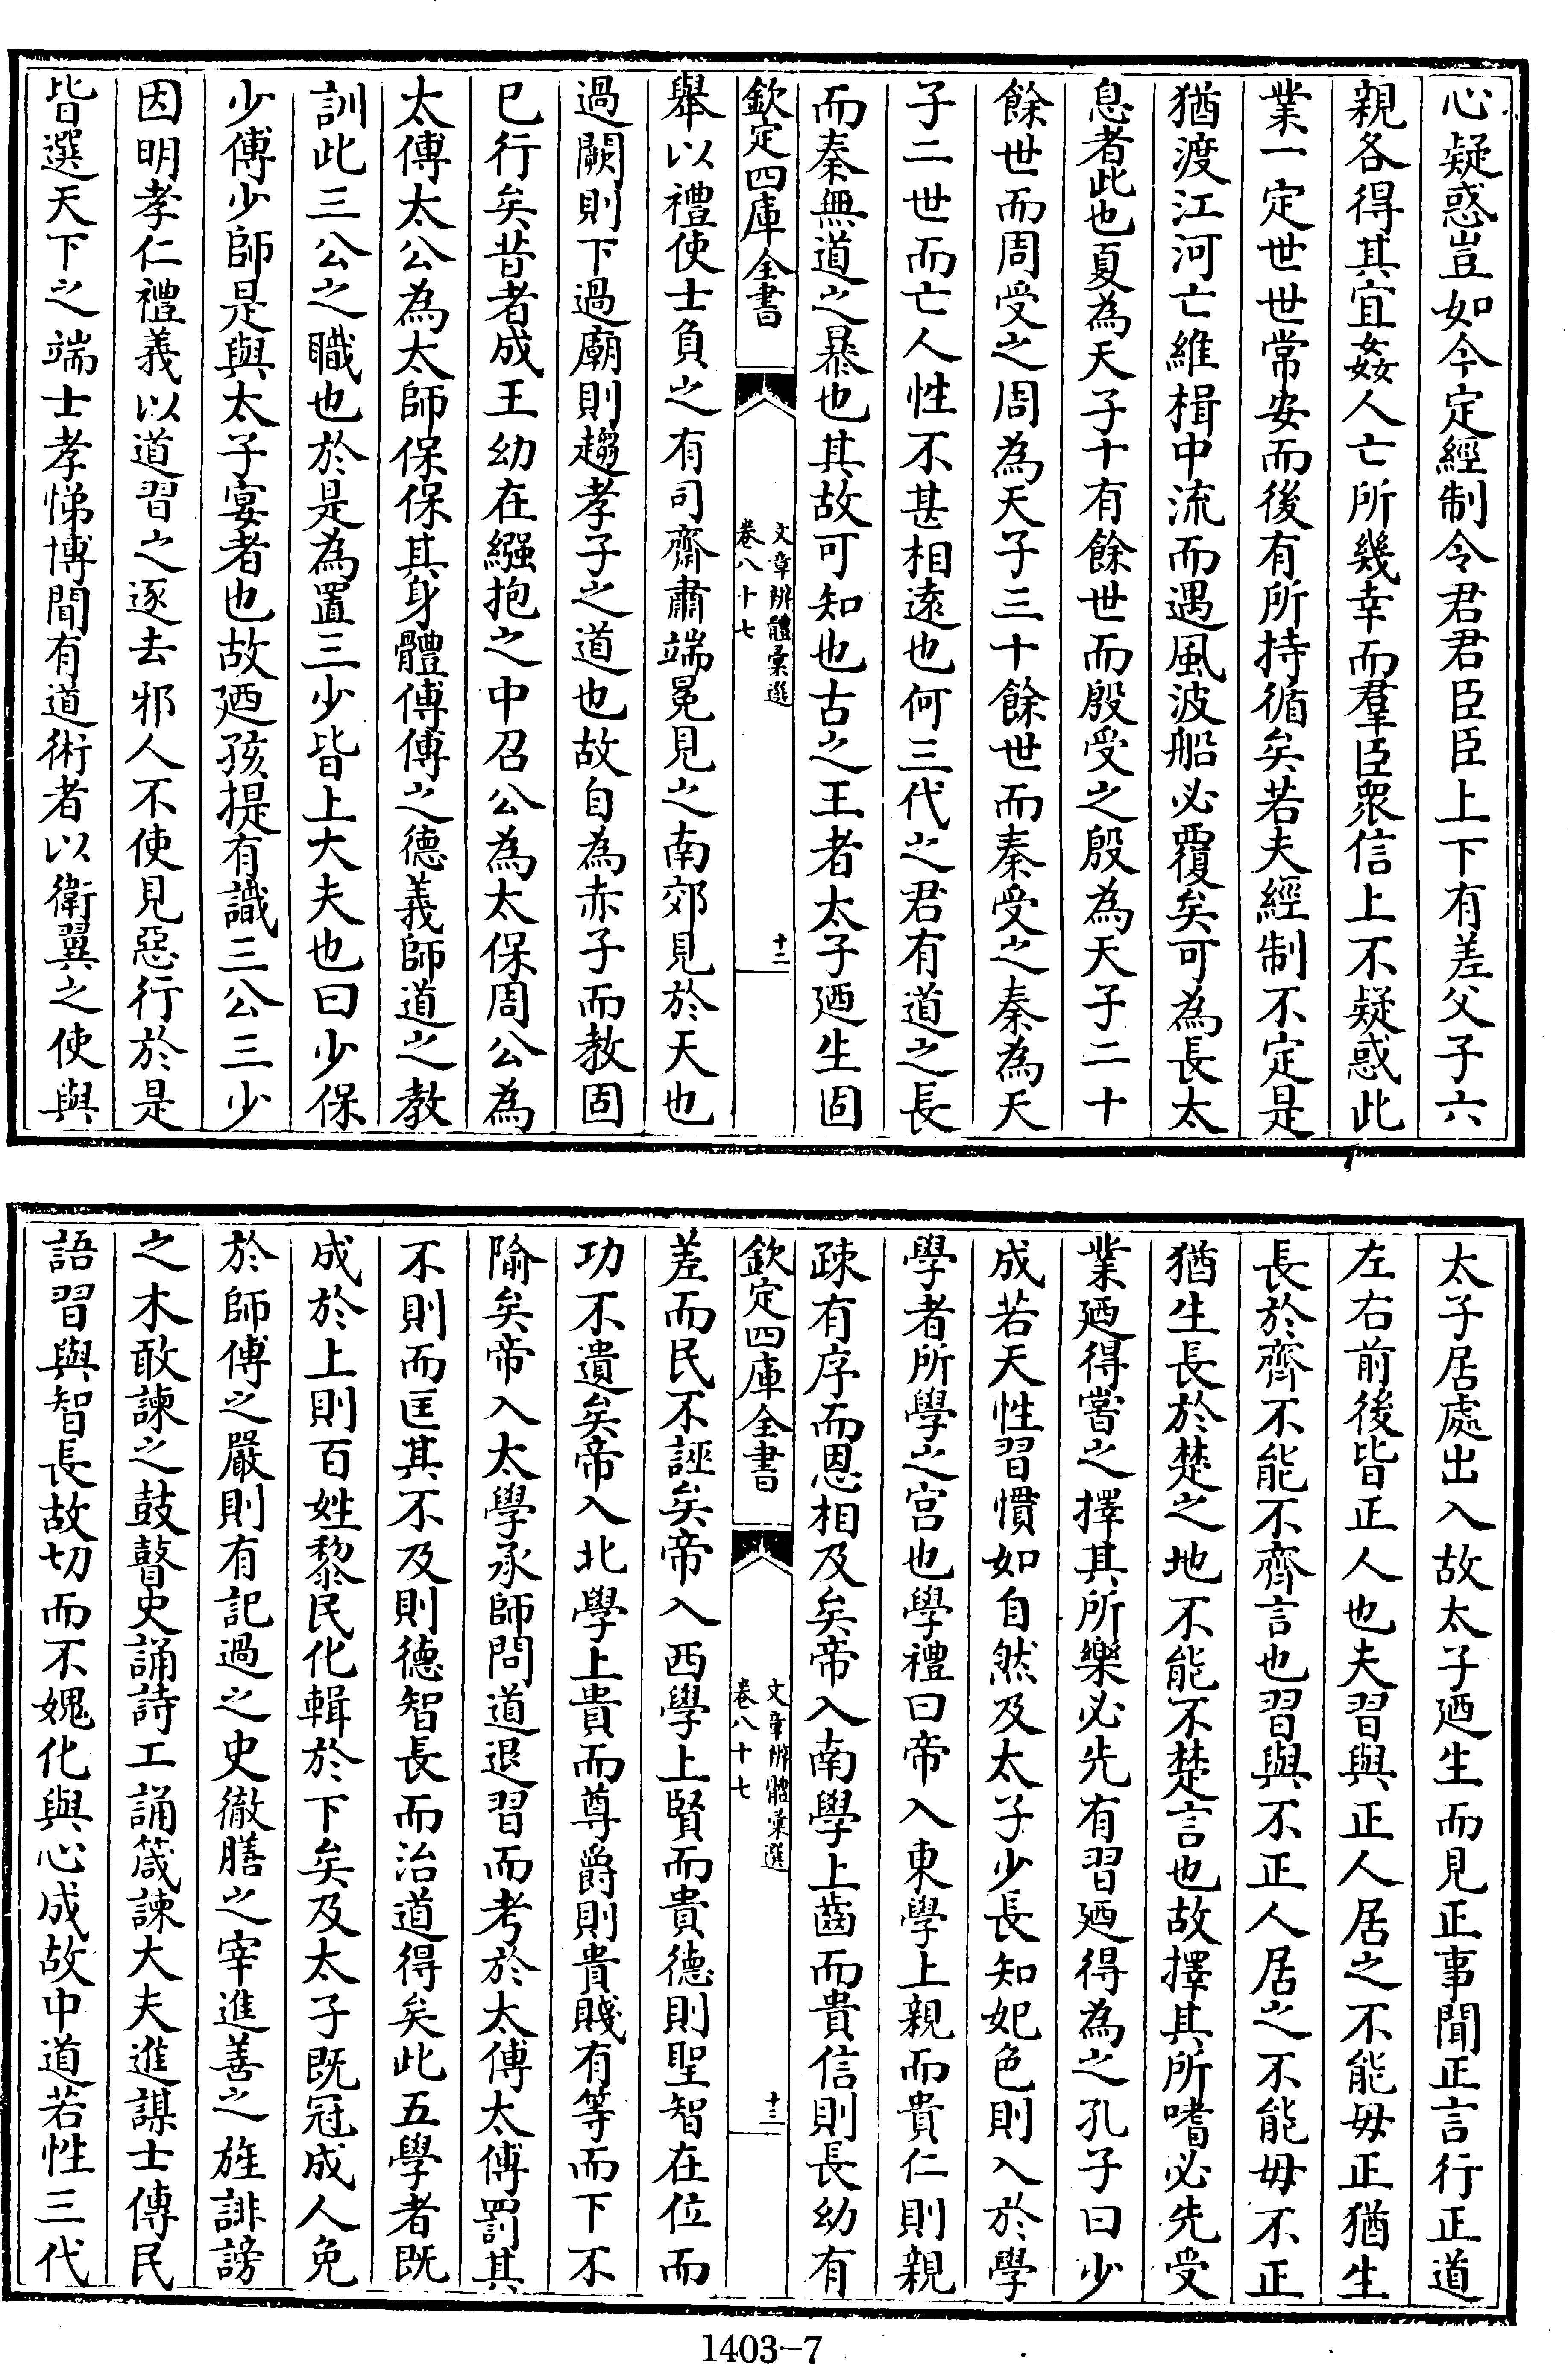 心疑惑豈如今定經制令君君臣臣上下有差父子六
親各得其宜姦人亡所幾幸而羣臣衆信上不疑惑此
業一定世世常安而後有所持循矣若夫經制不定是
猶渡江河亡維楫中流而遇風波船必覆矣可為長太
息者此也夏為天子十有餘世而殷受之殷為天子二十
餘世而周受之周為天子三十餘世而秦受之秦為天
子二世而亡人性不甚相遠也何三代之君有道之長
而秦無道之暴也其故可知也古之王者太子廼生固
欽定四庫全書
文章辨體彙選
卷八十七
十二
舉以禮使士負之有司齋肅端冕見之南郊見於天也
過闕則下過廟則趨孝子之道也故自為赤子而教固
已行矣昔者成王幼在繈抱之中召公為太保周公為
太傅太公為太師保保其身體傅傅之德義師道之教
訓此三公之職也於是為置三少皆上大夫也曰少保
少傅少師是與太子宴者也故廼孩提有識三公三少
因明孝仁禮義以道習之逐去邪人不使見惡行於是
皆選天下之端士孝悌博聞有道術者以衛翼之使與
太子居處出入故太子廼生而見正事聞正言行正道
左右前後皆正人也夫習與正人居之不能毋正猶生
長於齊不能不齊言也習與不正人居之不能毋不正
猶生長於楚之地不能不楚言也故擇其所嗜必先受
業廼得嘗之擇其所樂必先有習廼得為之孔子曰少
成若天性習慣如自然及太子少長知妃色則入於學
學者所學之宫也學禮曰帝入東學上親而貴仁則親
疎有序而恩相及矣帝入南學上齒而貴信則長幼有
欽定四庫全書
文章辨體彙選
卷八十七
十三
差而民不誣矣帝入西學上賢而貴德則聖智在位而
功不遺矣帝入北學上貴而尊爵則貴賤有等而下不
隃矣帝入太學承師問道退習而考於太傅太傅罰其
不則而匡其不及則德智長而治道得矣此五學者既
成於上則百姓黎民化輯於下矣及太子既冠成人免
於師傅之嚴則有記過之史徹膳之宰進善之旌誹謗
之木敢諫之鼓瞽史誦詩工誦箴諫大夫進謀士傳民
語習與智長故切而不媿化與心成故中道若性三代
1403-7